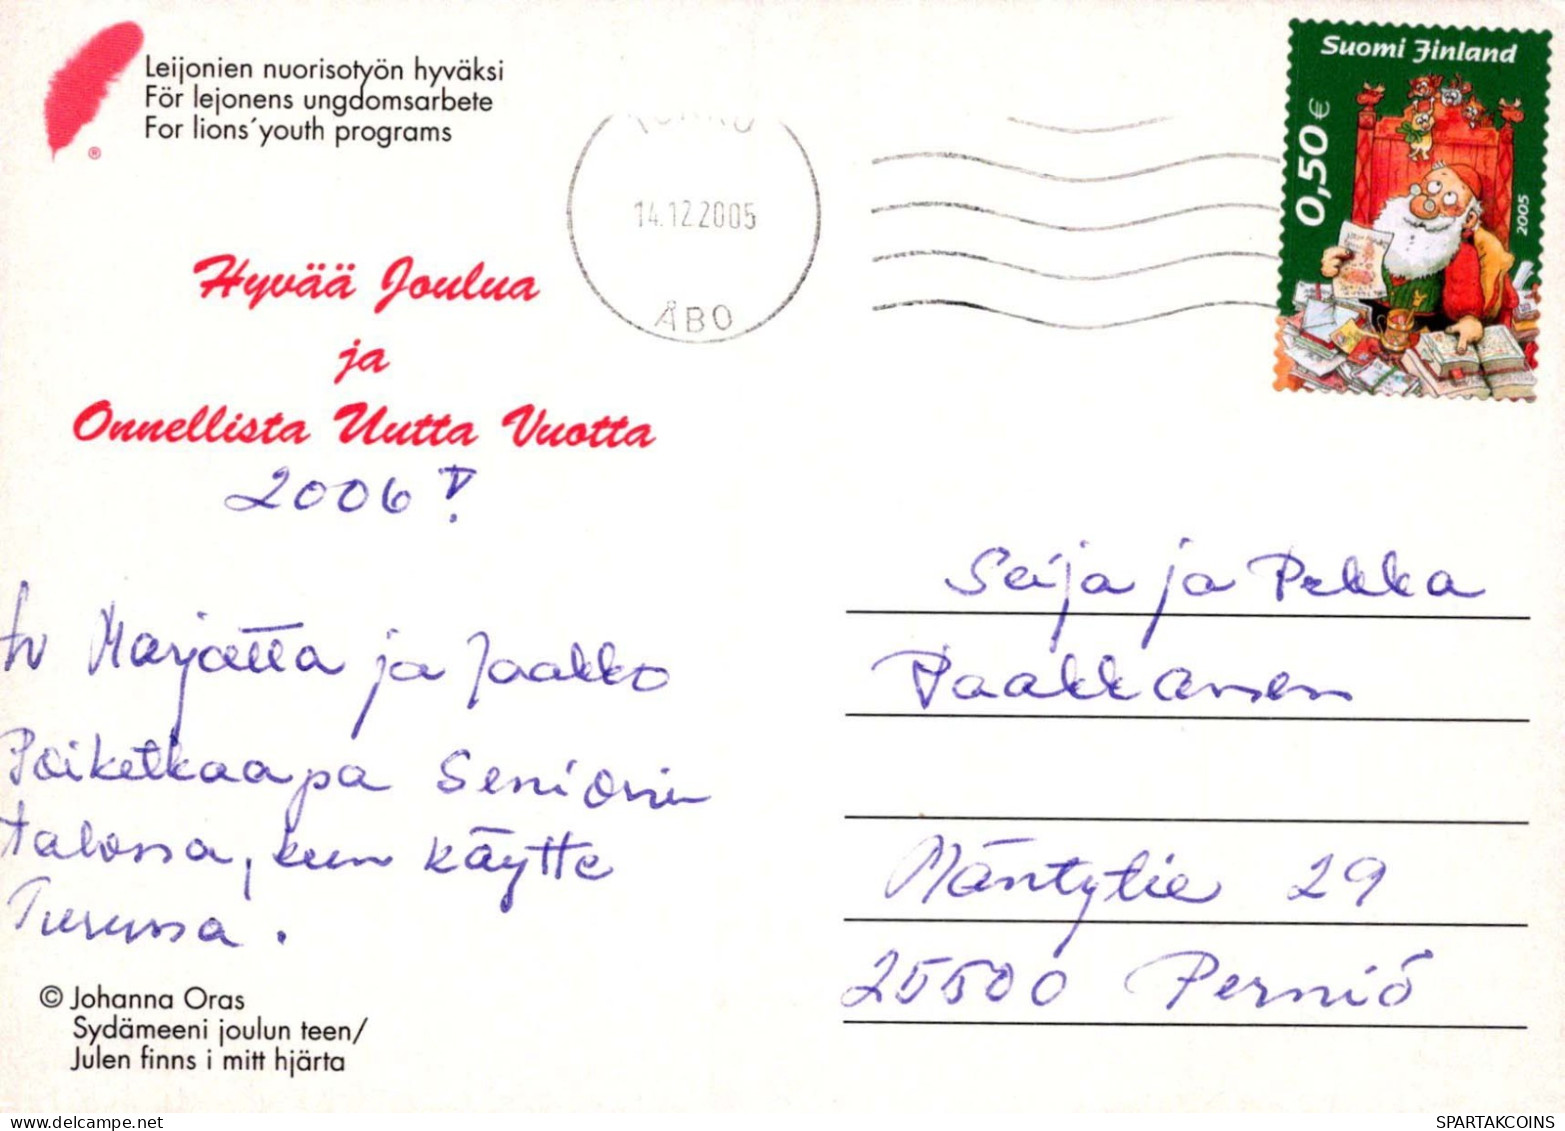 Leijonien nuorisotyön hyväksi
För lejonens ungdomsarbete
For lions´youth programs
®
14.12.2005
ÅBO
Suomi Finland
0,50 €
2005
Hyvää Joulua
ja
Onnellista Uutta Vuotta
2006 !
tv Marjatta ja Jaakko
Poiketkaapa Seniorin
talossa, kun käytte
Turussa.
Seija ja Pekka
Paakkanen
Mäntytie 29
25500 Perniö
© Johanna Oras
Sydämeeni joulun teen/
Julen finns i mitt hjärta
SPARTAKCOINS